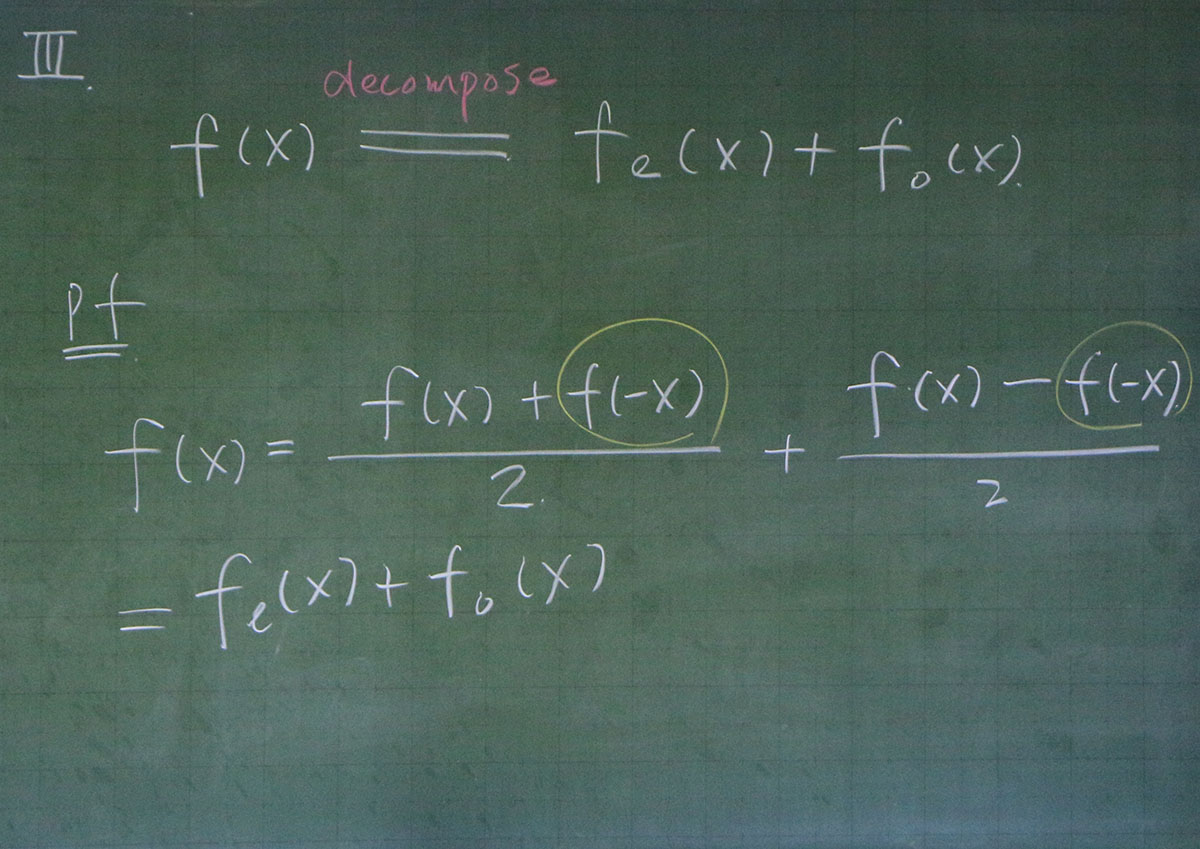 III.
decompose
f(x) = fₑ(x) + fₒ(x).
pf
f(x) = (f(x) + f(-x))/2 + (f(x) - f(-x))/2
= fₑ(x) + fₒ(x)